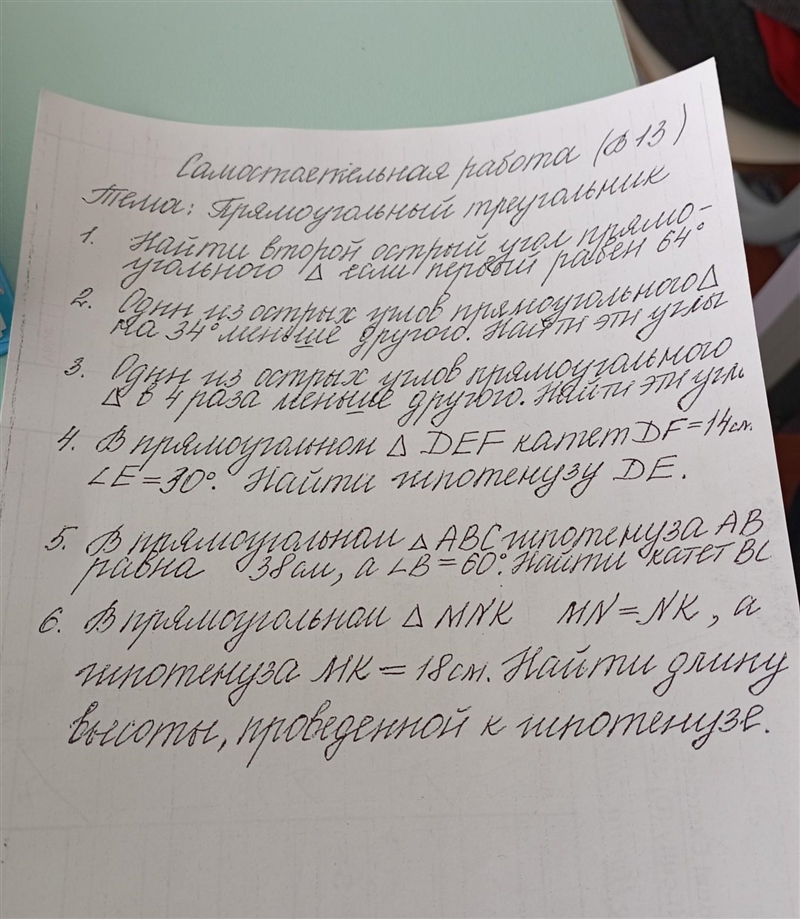 Самостоятельная работа (В 13)
Тема: Прямоугольный треугольник
1. Найти второй острый угол прямо-
угольного △ если первый равен 64°
2. Один из острых углов прямоугольного △
на 34° меньше другого. Найти эти углы
3. Один из острых углов прямоугольного
△ в 4 раза меньше другого. Найти эти угл
4. В прямоугольном △ DEF катет DF = 14 см.
∠E = 30°. Найти гипотенузу DE.
5. В прямоугольном △ ABC гипотенуза AB
равна 38 см, а ∠B = 60°. Найти катет BC
6. В прямоугольном △ MNK MN = NK, а
гипотенуза MK = 18 см. Найти длину
высоты, проведенной к гипотенузе.